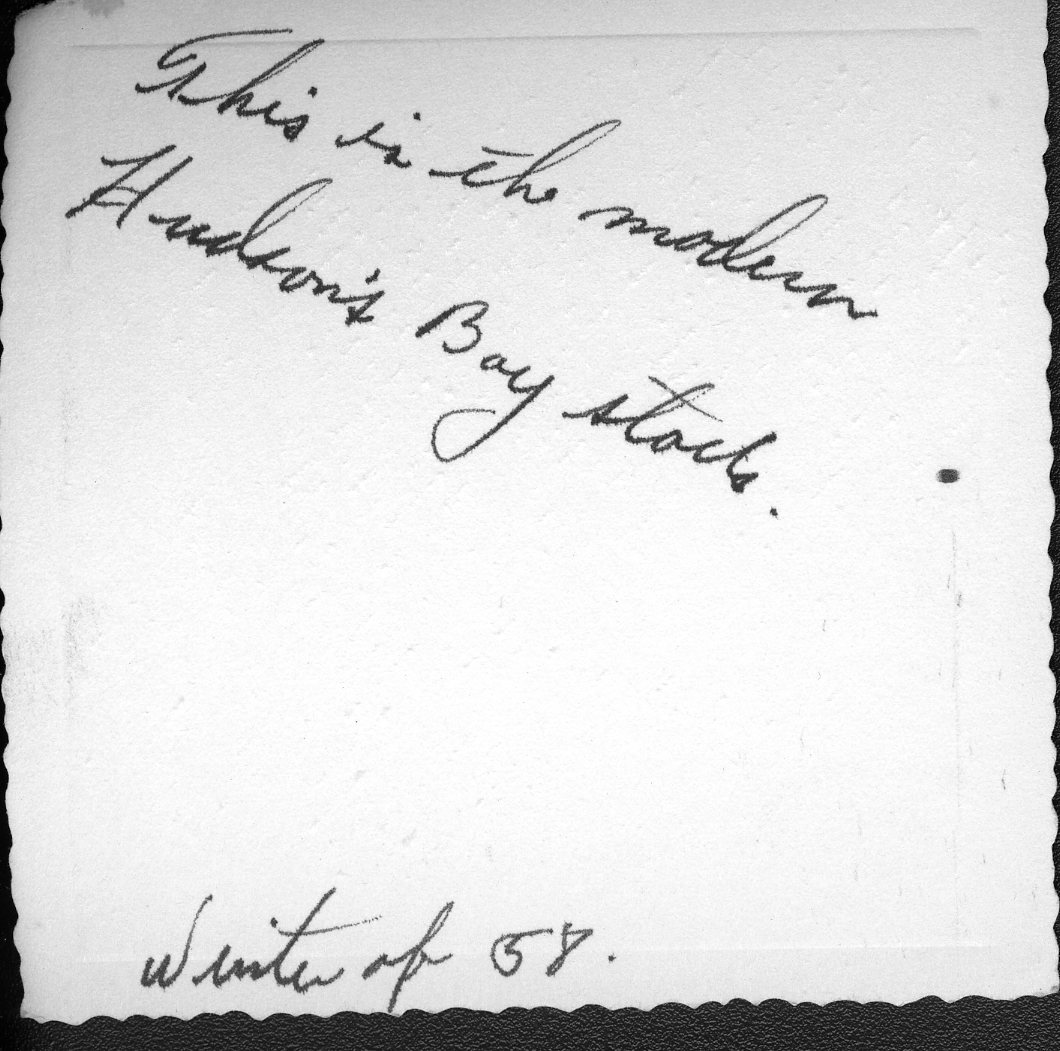 This is the modern
Hudson's Bay stock.
Winter of 58.